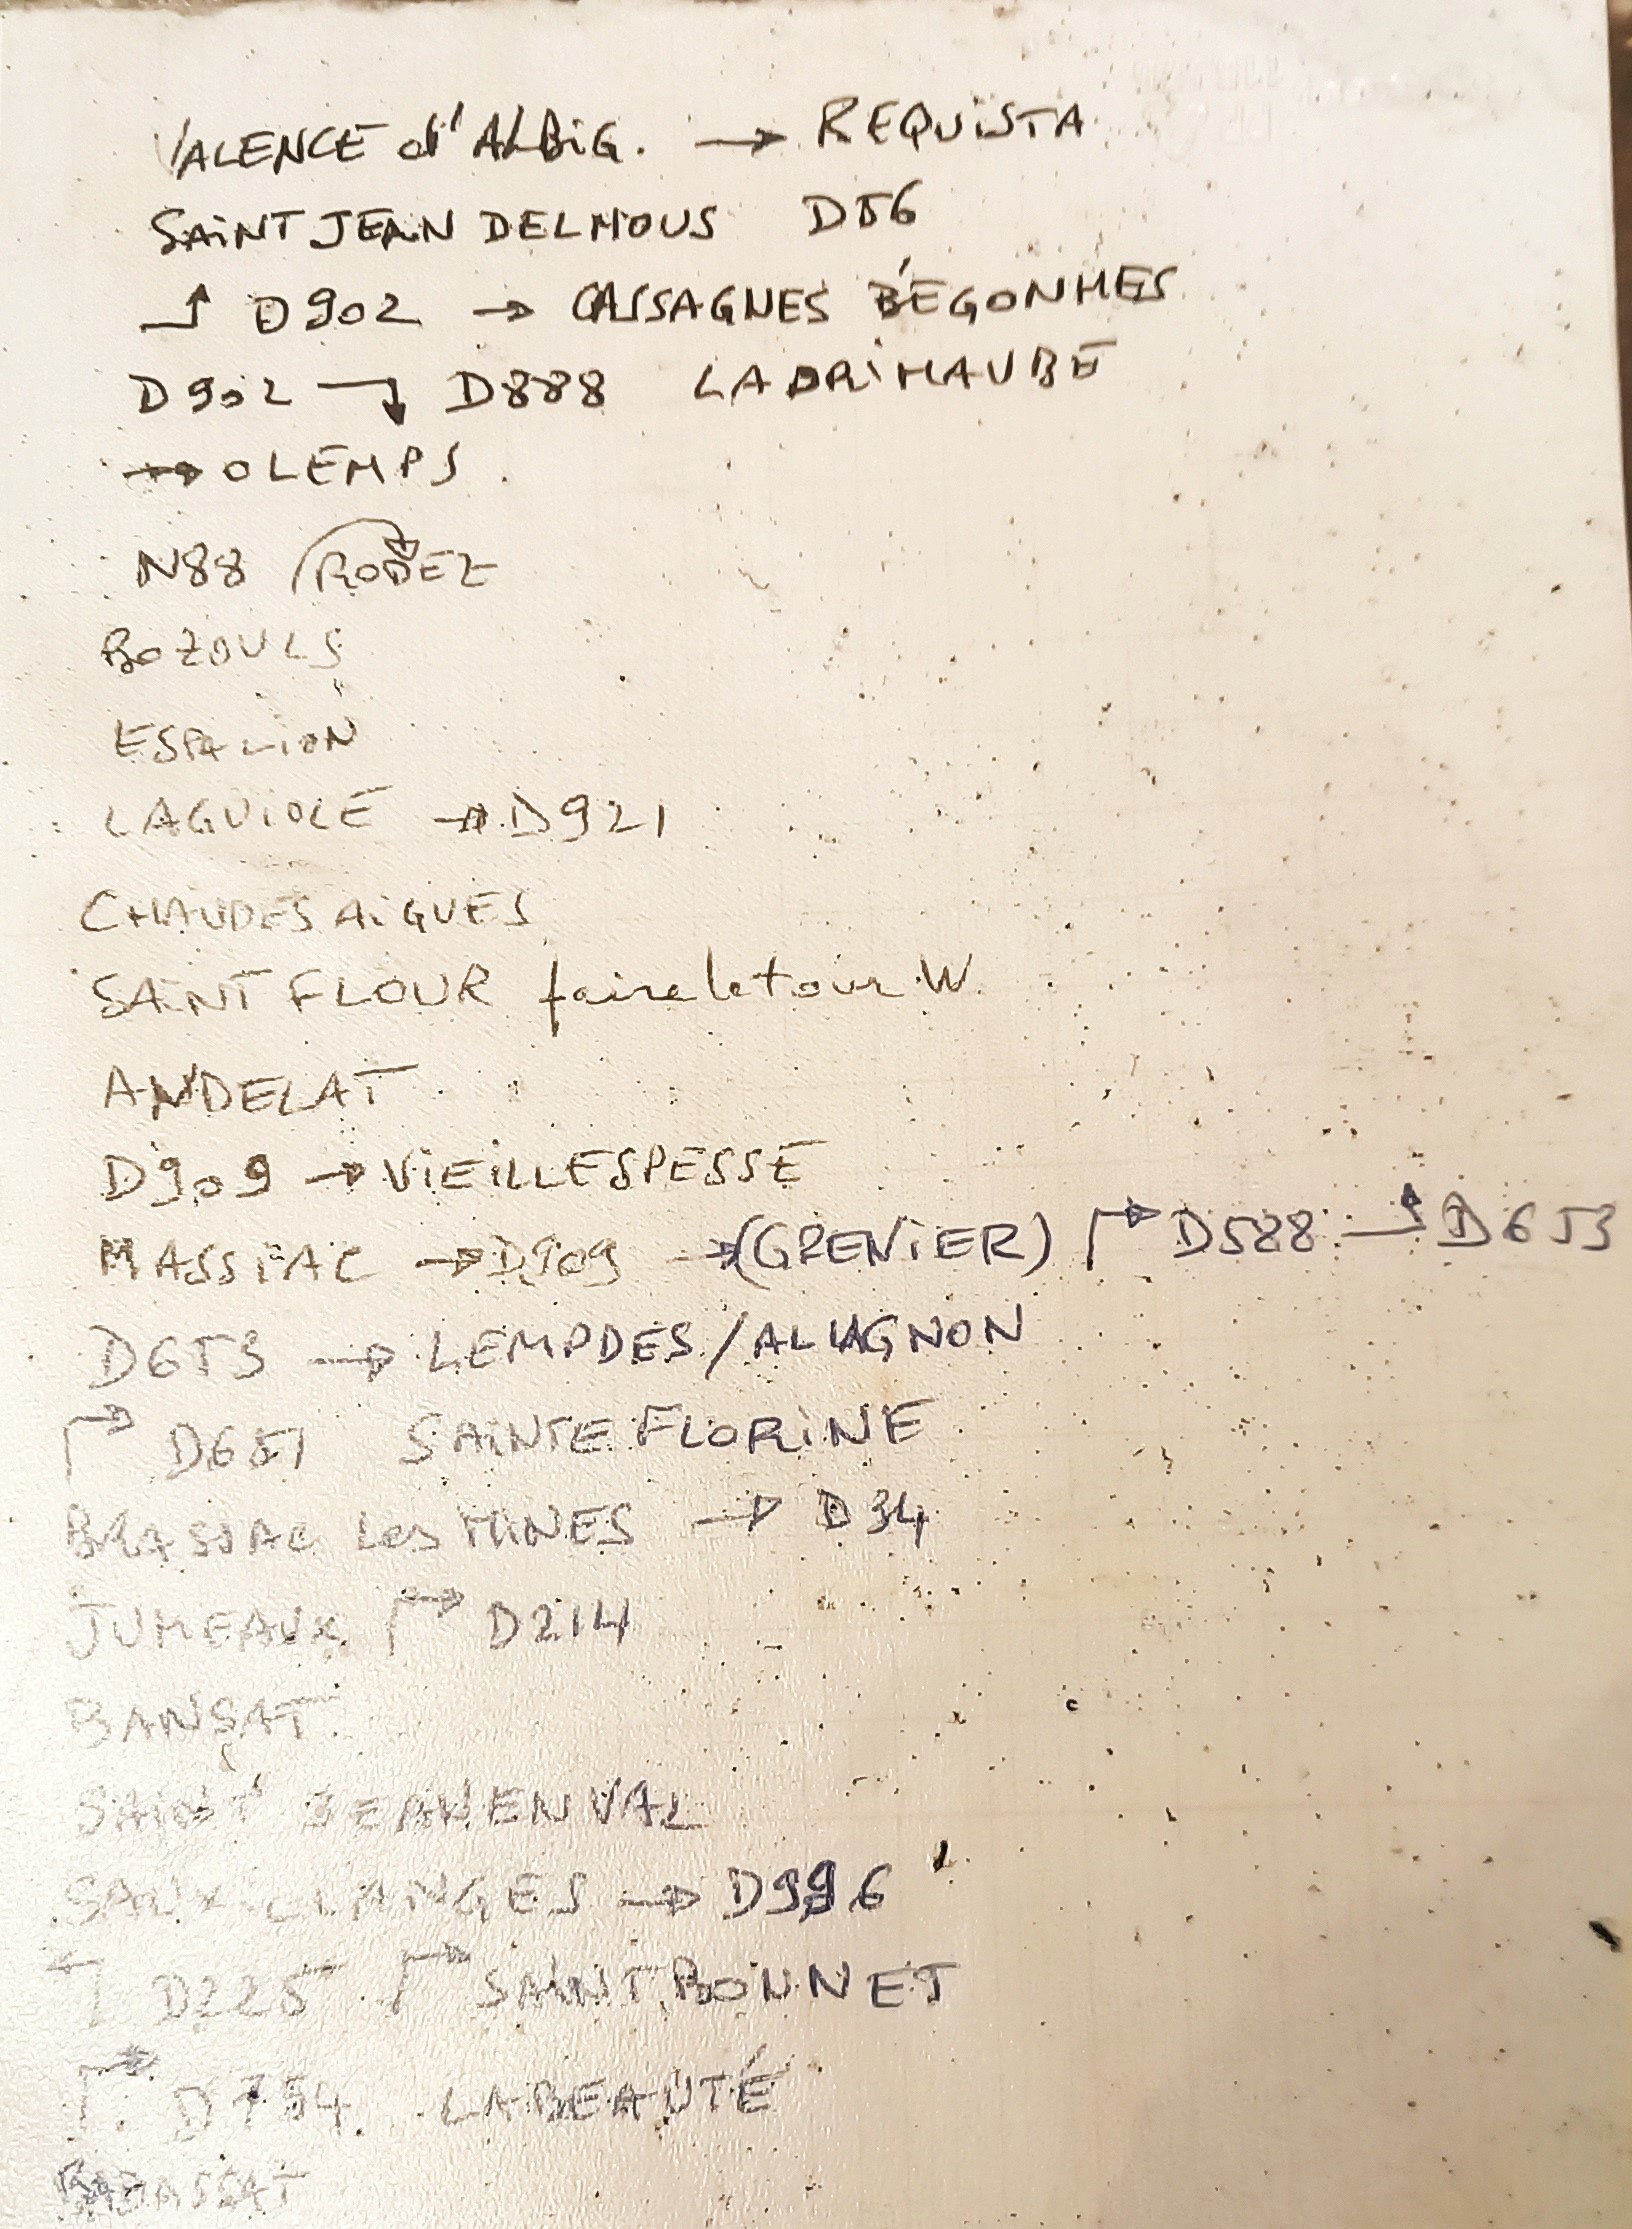 VALENCE d'ALBIG. → REQUISTA
SAINT JEAN DELNOUS D56
⮥ D902 → CASSAGNES BÉGONHES
D902 ⮧ D888 LA PRIMAUBE
→ OLEMPS
N88 RODEZ
BOZOULS
ESPALION
LAGUIOLE → D921
CHAUDES AIGUES
SAINT FLOUR faire le tour W
ANDELAT
D909 → VIEILLESPESSE
MASSIAC → D909 → (GRENIER) ↱ D588 ⮥ D653
D653 → LEMPDES/ALLAGNON
↱ D651 SAINTE FLORINE
BRASSAC Les MINES → D34
JUMEAUX ↱ D214
BANSAT
SAINT JEAN EN VAL
SAUXILLANGES → D996
↰ D225 ↱ SAINT BONNET
↱ D754 LA BEAUTÉ